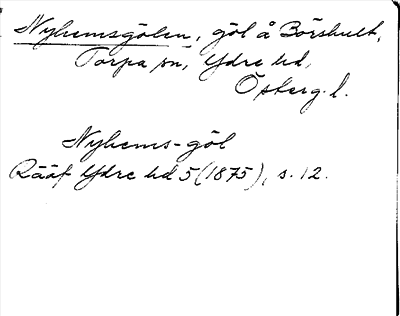 Nyhemsgölen, göl å Börshult,
Torpa sn, Ydre hd,
Österg. l.
Nyhems-göl
Rääf Ydre hd 5 (1875), s. 12.